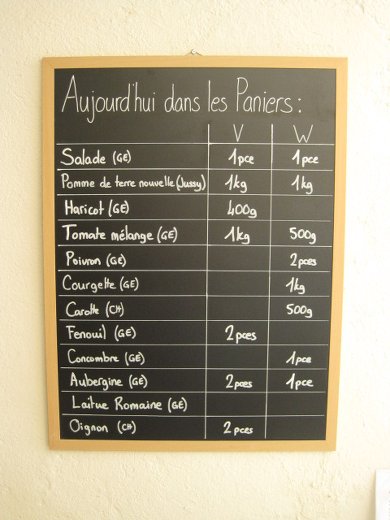 Aujourd'hui dans les Paniers :
V W
Salade (GE) 1pce 1pce
Pomme de terre nouvelle (Jussy) 1kg 1kg
Haricot (GE) 400g
Tomate mélange (GE) 1kg 500g
Poivron (GE) 2pces
Courgette (GE) 1kg
Carotte (CH) 500g
Fenouil (GE) 2pces
Concombre (GE) 1pce
Aubergine (GE) 2pces 1pce
Laitue Romaine (GE)
Oignon (CH) 2pces